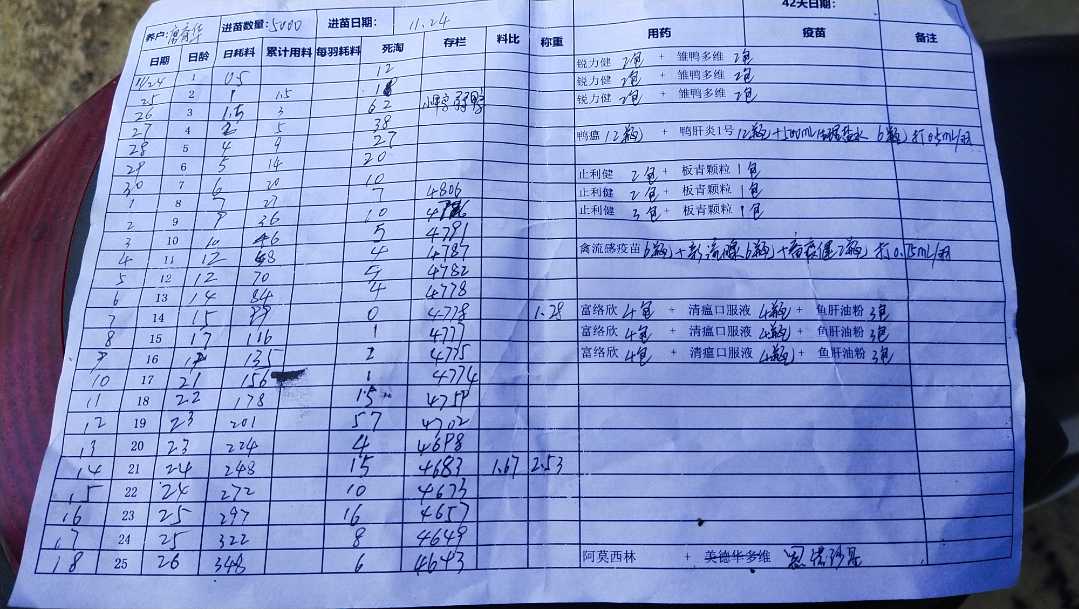 42天日期：
养户： 进苗数量：5000 进苗日期： 11.24
日期 日龄 日耗料 累计用料 每羽耗料 死淘 存栏 料比 称重 用药 疫苗 备注
11/24 1 05 12 锐力健 2包 + 雏鸭多维 2包
25 2 1 1.5 18 锐力健 2包 + 雏鸭多维 2包
26 3 1.5 3 62 锐力健 2包 + 雏鸭多维 2包
27 4 2 5 38
28 5 4 9 27 鸭瘟 12瓶 + 鸭肝炎1号 12瓶 +500mL 盐水 6瓶 打0.5mL/羽
29 6 5 14 20
30 7 6 20 10 止利健 2包 + 板青颗粒 1包
1 8 7 27 7 4806 止利健 2包 + 板青颗粒 1包
2 9 9 36 10 止利健 3包 + 板青颗粒 1包
3 10 10 46 5 4791
4 11 12 4 4787 禽流感疫苗 6瓶 + 6瓶 + 2瓶 打0.75mL/羽
5 12 12 70 5 4782
6 13 14 84 4 4778
7 14 15 99 0 4778 1.28 富络欣 4包 + 清瘟口服液 4瓶 + 鱼肝油粉 3包
8 15 17 116 1 4777 富络欣 4包 + 清瘟口服液 4瓶 + 鱼肝油粉 3包
9 16 135 2 4775 富络欣 4包 + 清瘟口服液 4瓶 + 鱼肝油粉 3包
10 17 21 156 1 4774
11 18 22 178 15 4759
12 19 23 201 57 4702
13 20 23 224 4 4698
14 21 24 248 15 4683 1.67 2.53
15 22 24 272 10 4673
16 23 25 297 16 4657
17 24 25 322 8 4649
18 25 26 348 6 4643 阿莫西林 + 美德华多维